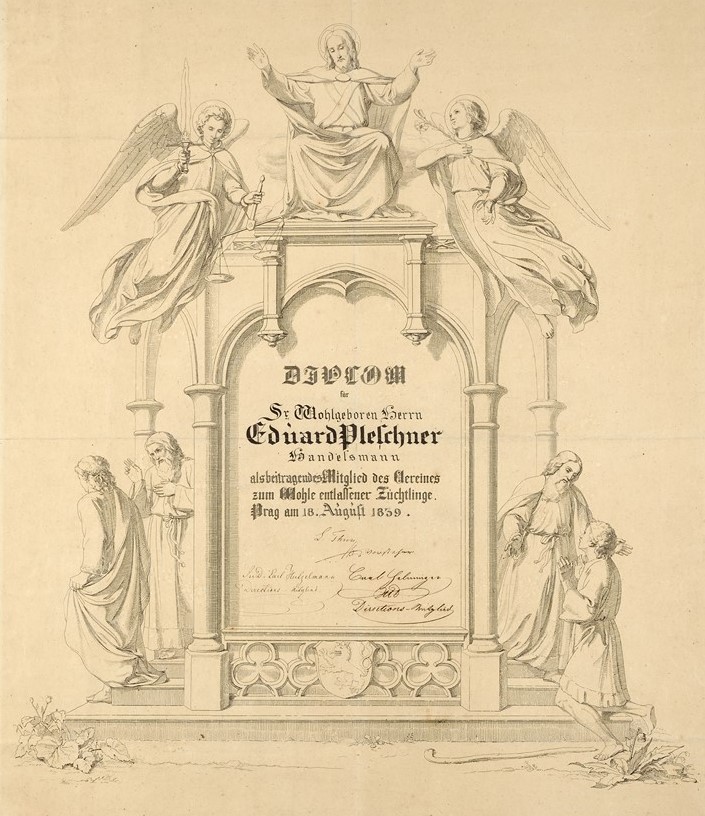 DIPLOM
für
Sr. Wohlgeboren Herrn
Eduard Pleschner
Handelsmann
als beitragendes Mitglied des Vereines
zum Wohle entlassener Züchtlinge.
Prag am 18. August 1839.
Carl
Directions-Mitglied